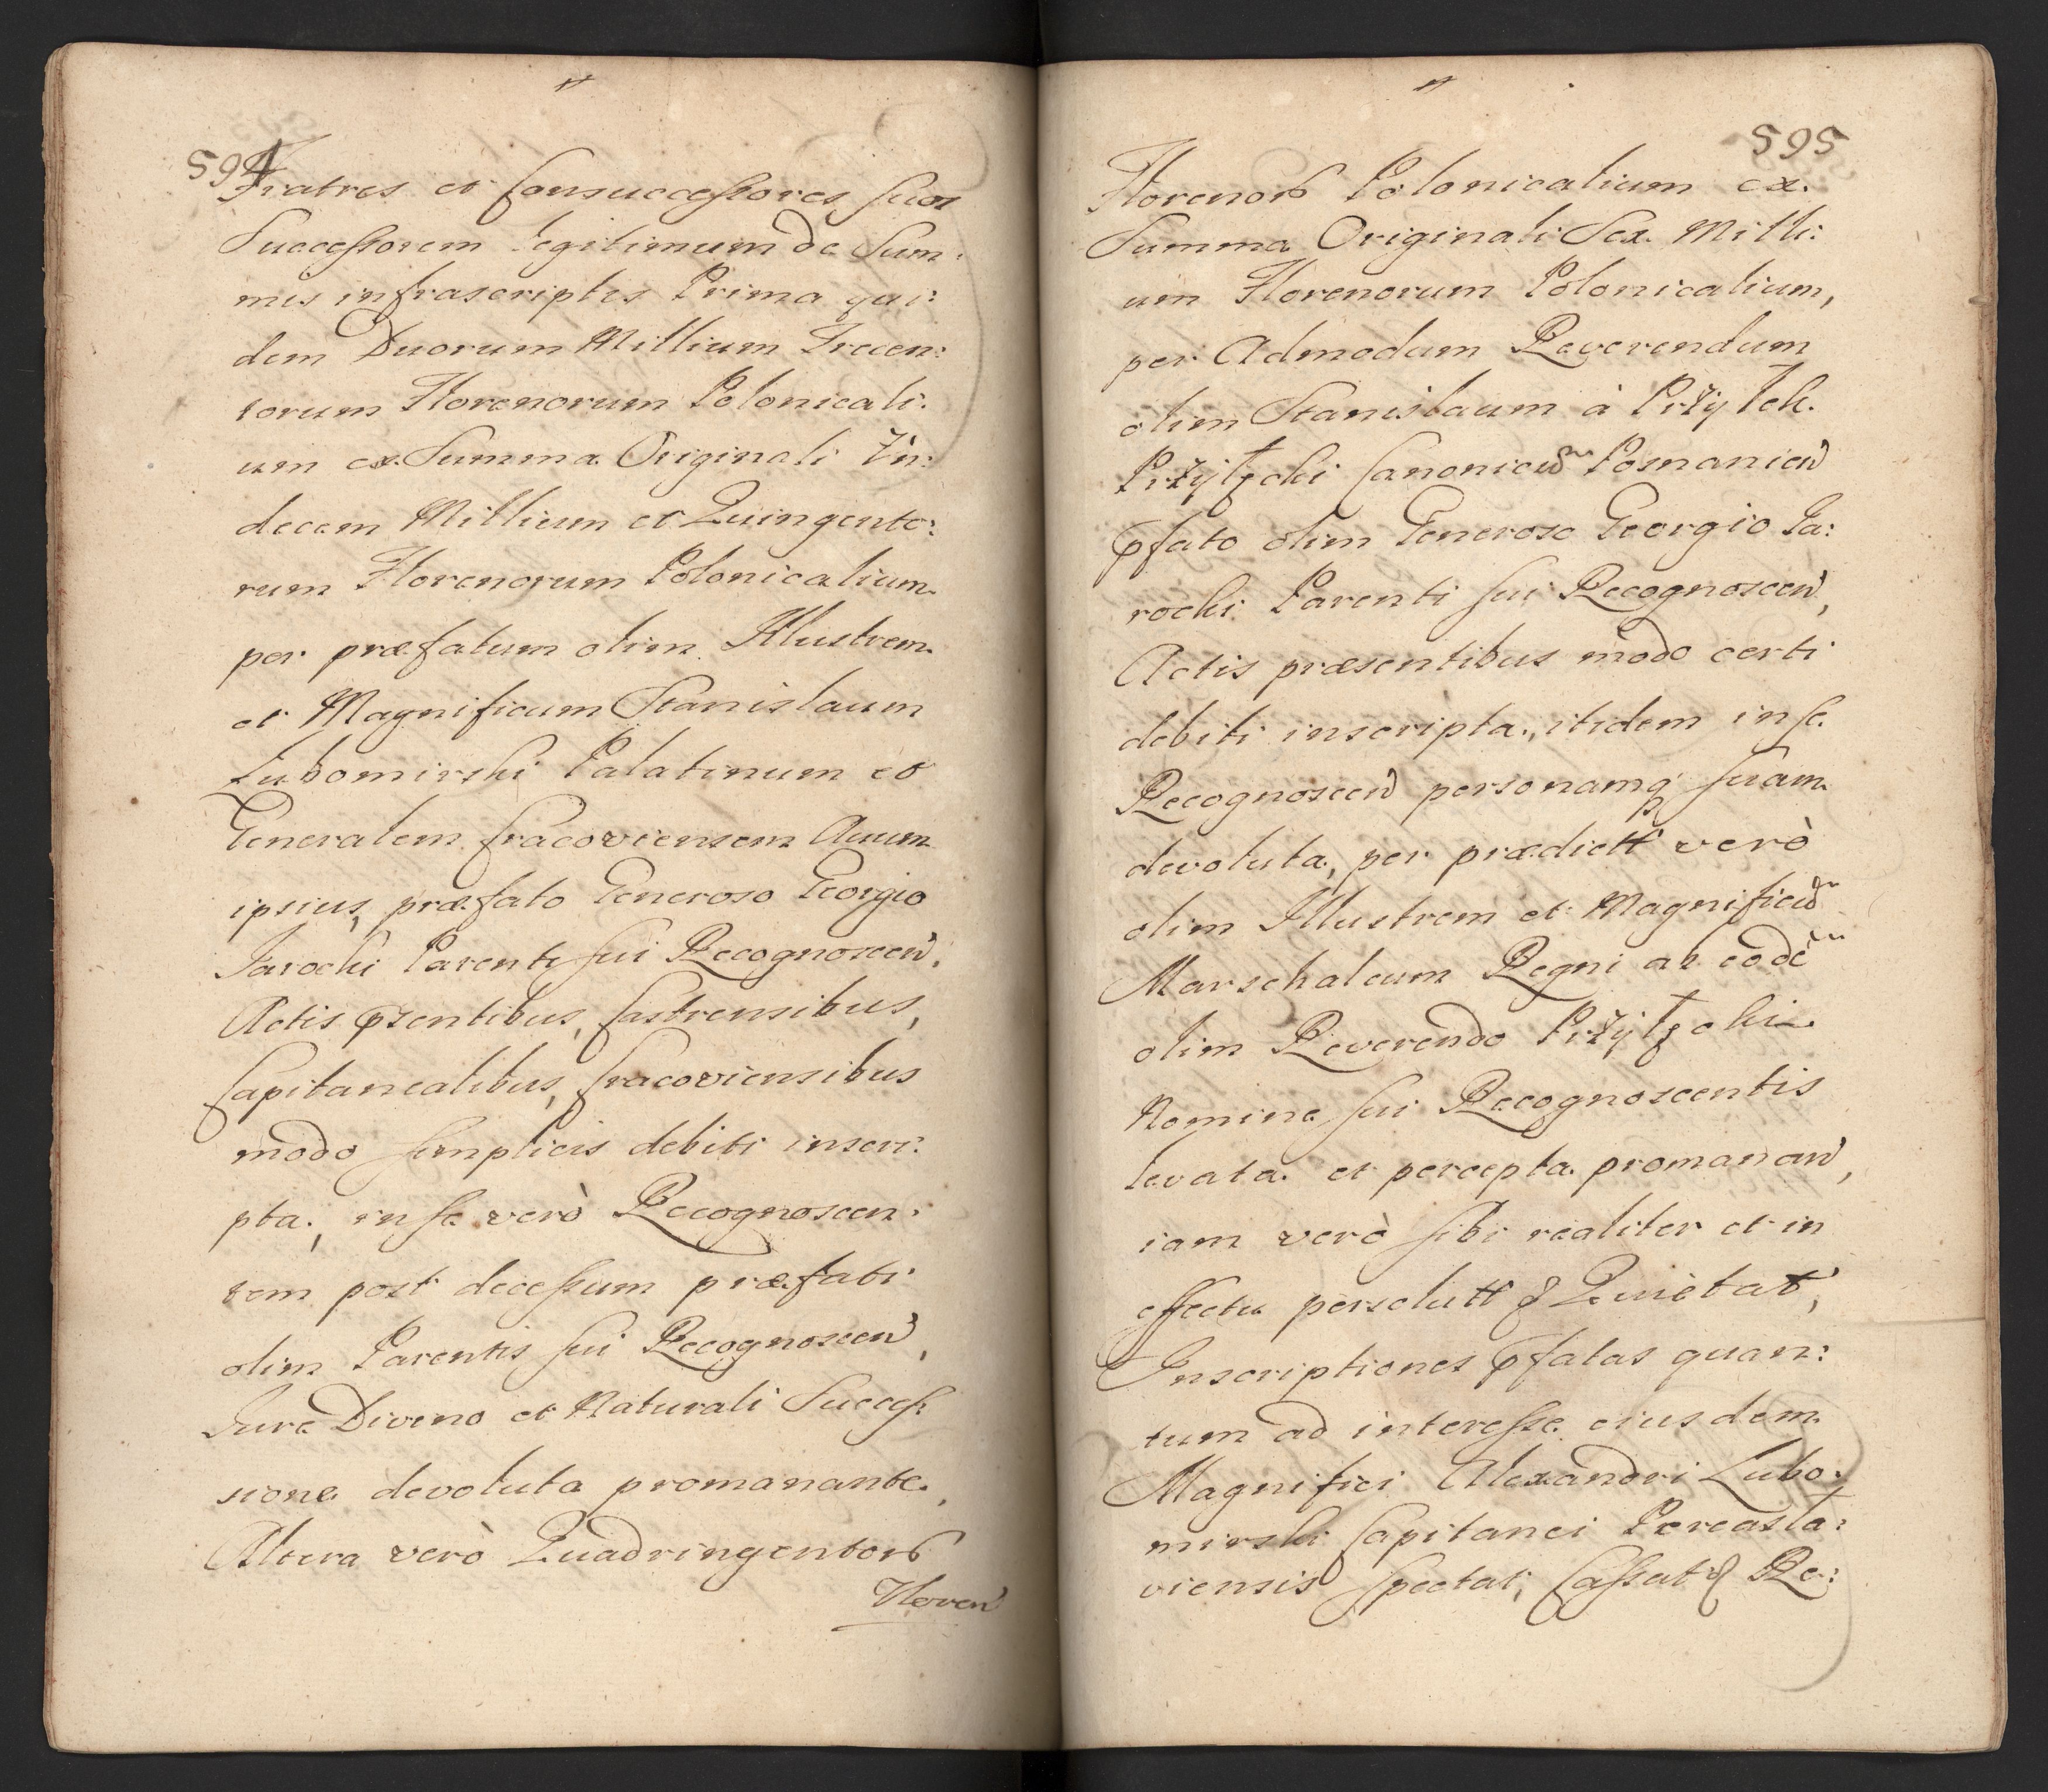 594
Fratres et Consuccessores suos
Successorem legitimum de Sum:
mis infrascriptis Prima qui:
dem Duorum Millium Trecen:
torum Florenorum Polonicali:
um ex Summa Originali Un:
decem Millium et Quingento:
rum Florenorum Polonicalium
per præfatum olim Illustrem
et Magnificum Stanislaum
Lubomirski Palatinum et
Generalem Cracoviensem Auum
ipsius, præfato Generoso Georgio
Jarocki Parenti sui Recognoscen,
Actis pñsentibus, Castrensibus,
Capitanealibus, Cracoviensibus
modo simplicis debiti inscri:
pta, in se verò Recognoscen:
tem post decessum præfati
olim Parentis sui Recognoscen,
Jure Divino et Naturali Succes:
sione devoluta promanante,
Altera verò Quadringentorũ
Floren
595
Florenorũ Polonicalium ex
Summa Originali Sex Milli:
um Florenorum Polonicalium,
per Admodum Reverendum
olim Stanislaum à Przytek
Przytycki Canonicũ Posnanien
pfato olim Generoso Georgio Ja:
rocki Parenti sui Recognoscen,
Actis præsentibus modo certi
debiti inscripta, itidem in se
Recognoscen personamq suam
devoluta, per prædictt verò
olim Illustrem et Magnificũ
Marschalcum Regni ab eodẽ
olim Reverendo Przytycki
Nomine sui Recognoscentis
levata et percepta promanan,
iam verò sibi realiter et in
effectu persolutt & Quietat,
Inscriptiones pfatas quan:
tum ad interesse eiusdem
Magnifici Alexandri Lubo:
mirski Capitanei Pereasla:
viensis spectat, Cassat & Re: